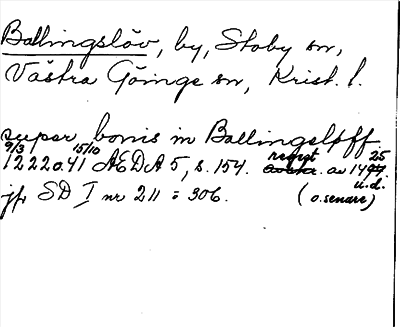 Ballingslöv, by, Stoby sn,
Västra Göinge sn, Krist. l.
super bonis in Ballingsløff
9/3 15/10 regest 25
1222 o. 41 ÆDA 5, s. 154. av 1494.
u.d.
jfr SD I nr 211 = 306. (o. senare)